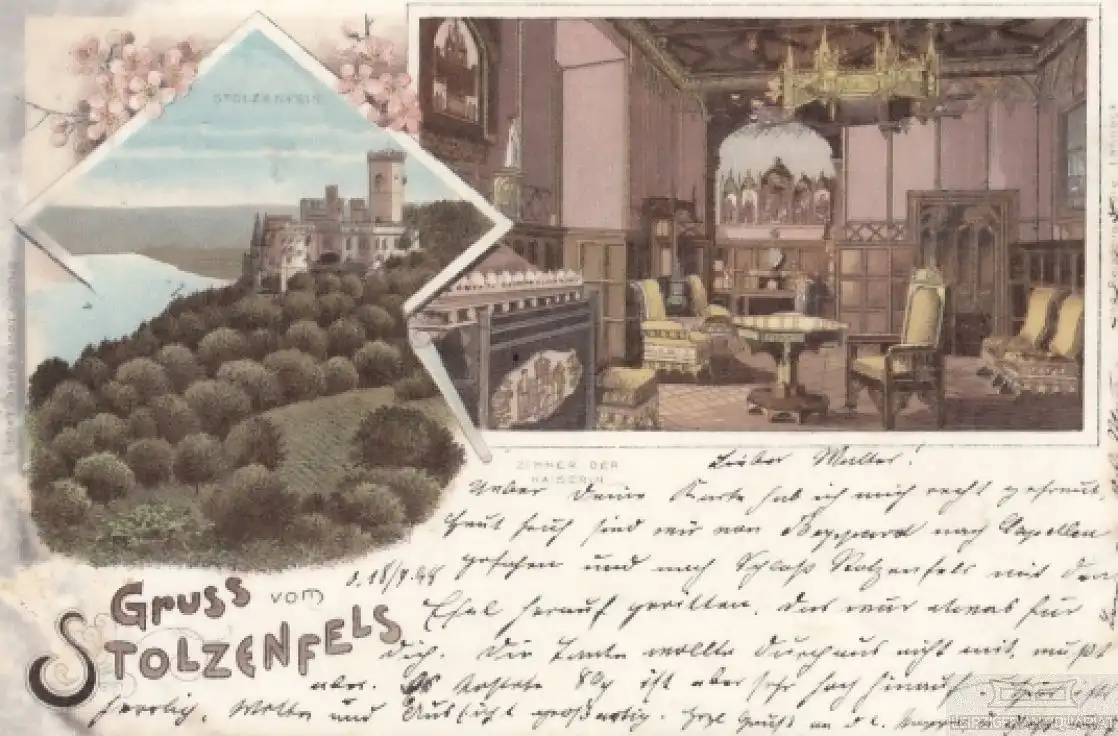 STOLZENFELS
ZIMMER DER
KAISERIN
Gruss vom
Stolzenfels
d. 18/9. 98
Lieber Walter!
Ueber Deine Karte hab ich mich recht gefreut.
Heut früh sind wir von Boppard nach Capellen
gefahren und nach Schloß Stolzenfels mit dem
Esel herauf geritten. Das wär etwas für
Dich. Die Tante wollte durchaus nicht mit, mußt
aber. Es kostete 80 ist aber sehr hoch hinauf. Hier ist
herrlich. Wetter und Aussicht großartig. Herzl Grüße an
LEIPZIGER ANTIQUARIAT